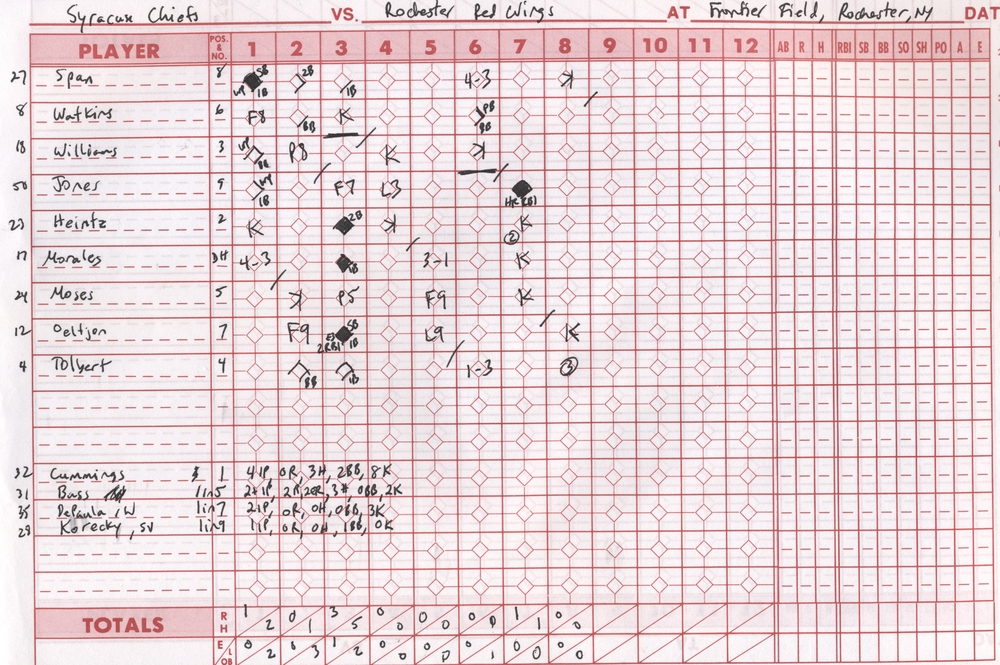 Syracuse Chiefs VS. Rochester Red Wings AT Frontier Field, Rochester, NY DAT
PLAYER POS. & NO. 1 2 3 4 5 6 7 8 9 10 11 12 AB R H RBI SB BB SO SH PO A E
27 Span 8 WP SB 1B 2B 1B 4-3 K
8 Watkins 6 F8 BB K PB BB
18 Williams 3 WP BB P8 K K
50 Jones 9 WP 1B F7 L3 HR RBI
23 Heintz 2 K 2B K K 2
17 Morales DH 4-3 1B 3-1 K
24 Moses 5 K P5 F9 K
12 Oeltjen 7 F9 E5 SB 2RBI 1B L9 K
4 Tolbert 4 BB 1B 1-3 3
32 Cummings 1 4 IP, 0R, 3H, 2BB, 8K
31 Bass 1in5 2+IP, 2R, 2ER, 3H, 0BB, 2K
35 DePaula, W 1in7 2IP, 0R, 0H, 0BB, 3K
28 Korecky, SV 1in9 1IP, 0R, 0H, 1BB, 0K
TOTALS R H 1 2 0 1 3 5 0 0 0 0 0 0 1 1 0 0
E LOB 0 2 0 3 1 2 0 0 0 0 0 1 0 0 0 0